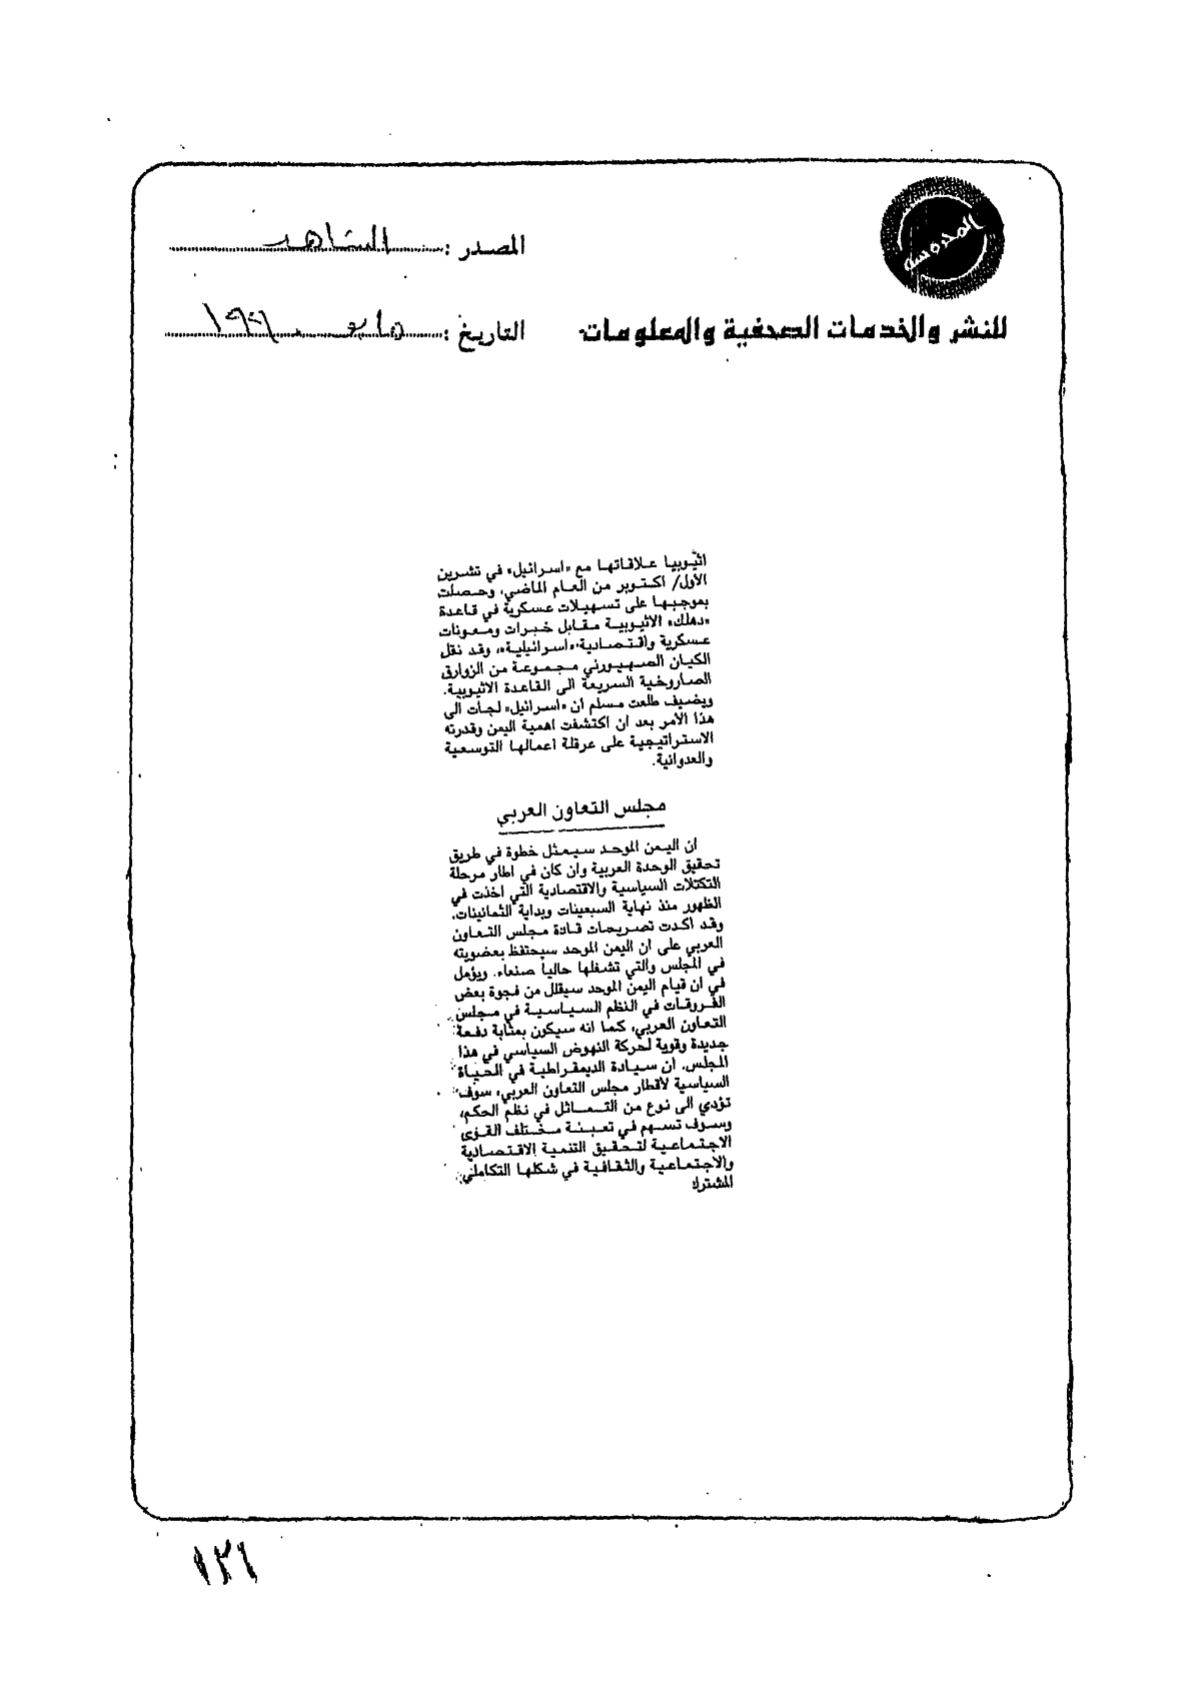 المحروسة
المصدر : الشاهد
للنشر والخدمات الصحفية والمعلومات
التاريخ : مايو ١٩٩٠
اثيوبيا علاقاتها مع «اسرائيل» في تشرين
الأول/ اكتوبر من العام الماضي، وحصلت
بموجبها على تسهيلات عسكرية في قاعدة
«دهلك» الاثيوبية مقابل خبرات ومعونات
عسكرية واقتصادية «اسرائيلية»، وقد نقل
الكيان الصهيوني مجموعة من الزوارق
الصاروخية السريعة الى القاعدة الاثيوبية.
ويضيف طلعت مسلم ان «اسرائيل» لجأت الى
هذا الأمر بعد ان اكتشفت اهمية اليمن وقدرته
الاستراتيجية على عرقلة اعمالها التوسعية
والعدوانية.
مجلس التعاون العربي
ان اليمن الموحد سيمثل خطوة في طريق
تحقيق الوحدة العربية وان كان في اطار مرحلة
التكتلات السياسية والاقتصادية التي اخذت في
الظهور منذ نهاية السبعينات وبداية الثمانينات.
وقد اكدت تصريحات قادة مجلس التعاون
العربي على ان اليمن الموحد سيحتفظ بعضويته
في المجلس والتي تشغلها حالياً صنعاء. ويؤمل
في ان قيام اليمن الموحد سيقلل من فجوة بعض
الفروقات في النظم السياسية في مجلس
التعاون العربي، كما انه سيكون بمثابة دفعة
جديدة وقوية لحركة النهوض السياسي في هذا
المجلس. ان سيادة الديمقراطية في الحياة
السياسية لأقطار مجلس التعاون العربي، سوف
تؤدي الى نوع من التماثل في نظم الحكم،
وسوف تسهم في تعبئة مختلف القوى
الاجتماعية لتحقيق التنمية الاقتصادية
والاجتماعية والثقافية في شكلها التكاملي
المشترك